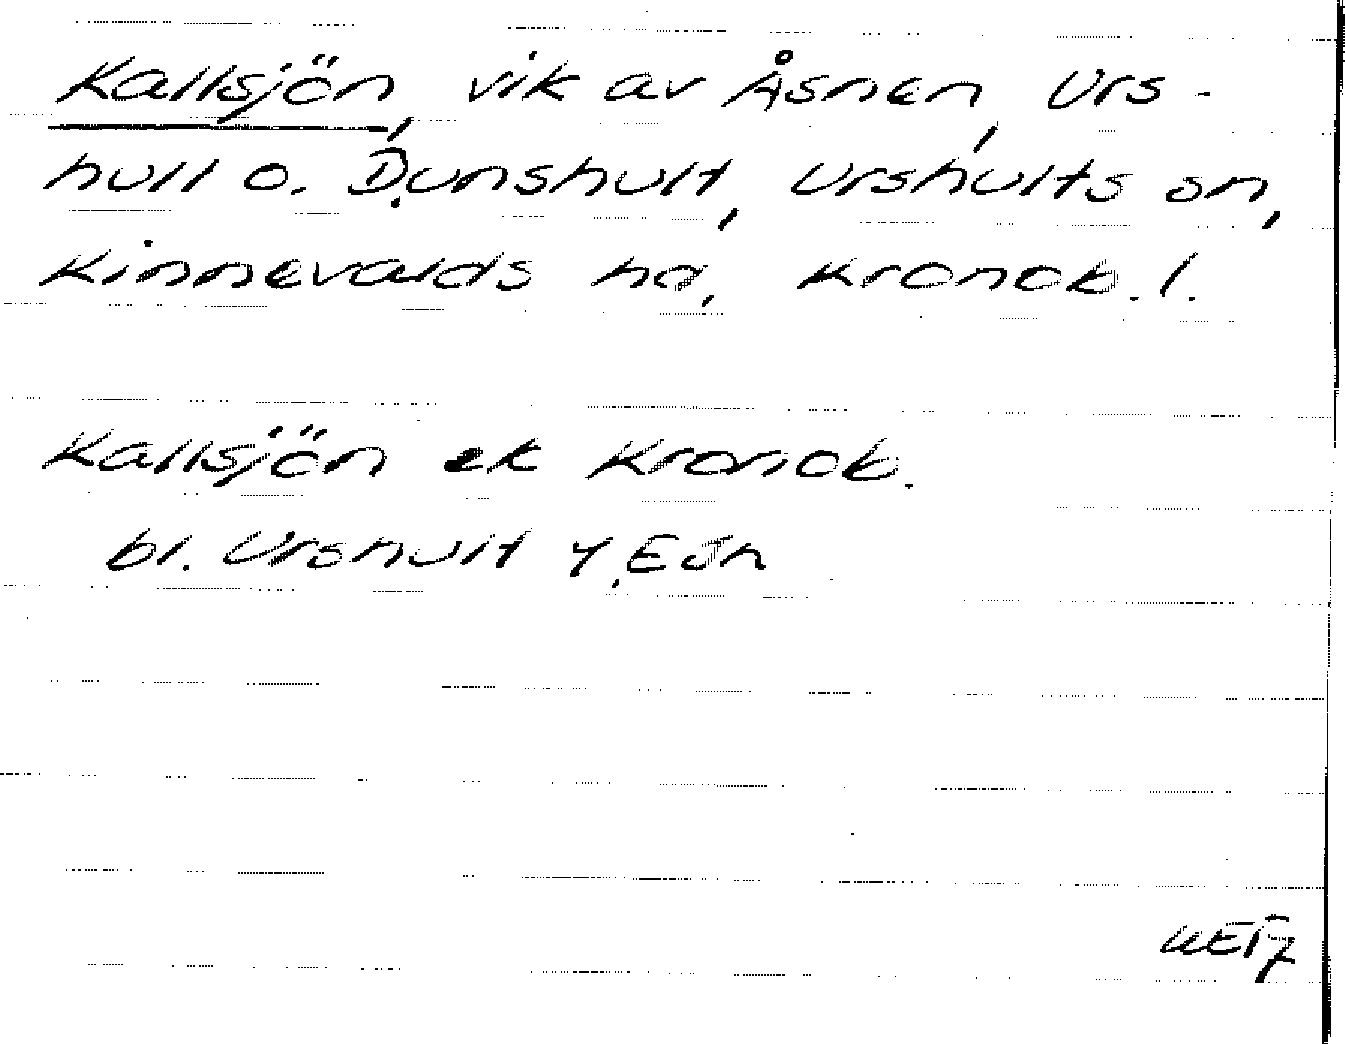 Kallsjön, vik av Åsnen, Urs-
hult o. Dunshult, Urshults sn,
Kinnevalds hd, Kronob. l.
Kallsjön ek Kronob.
bl. Urshult 4, E Jn